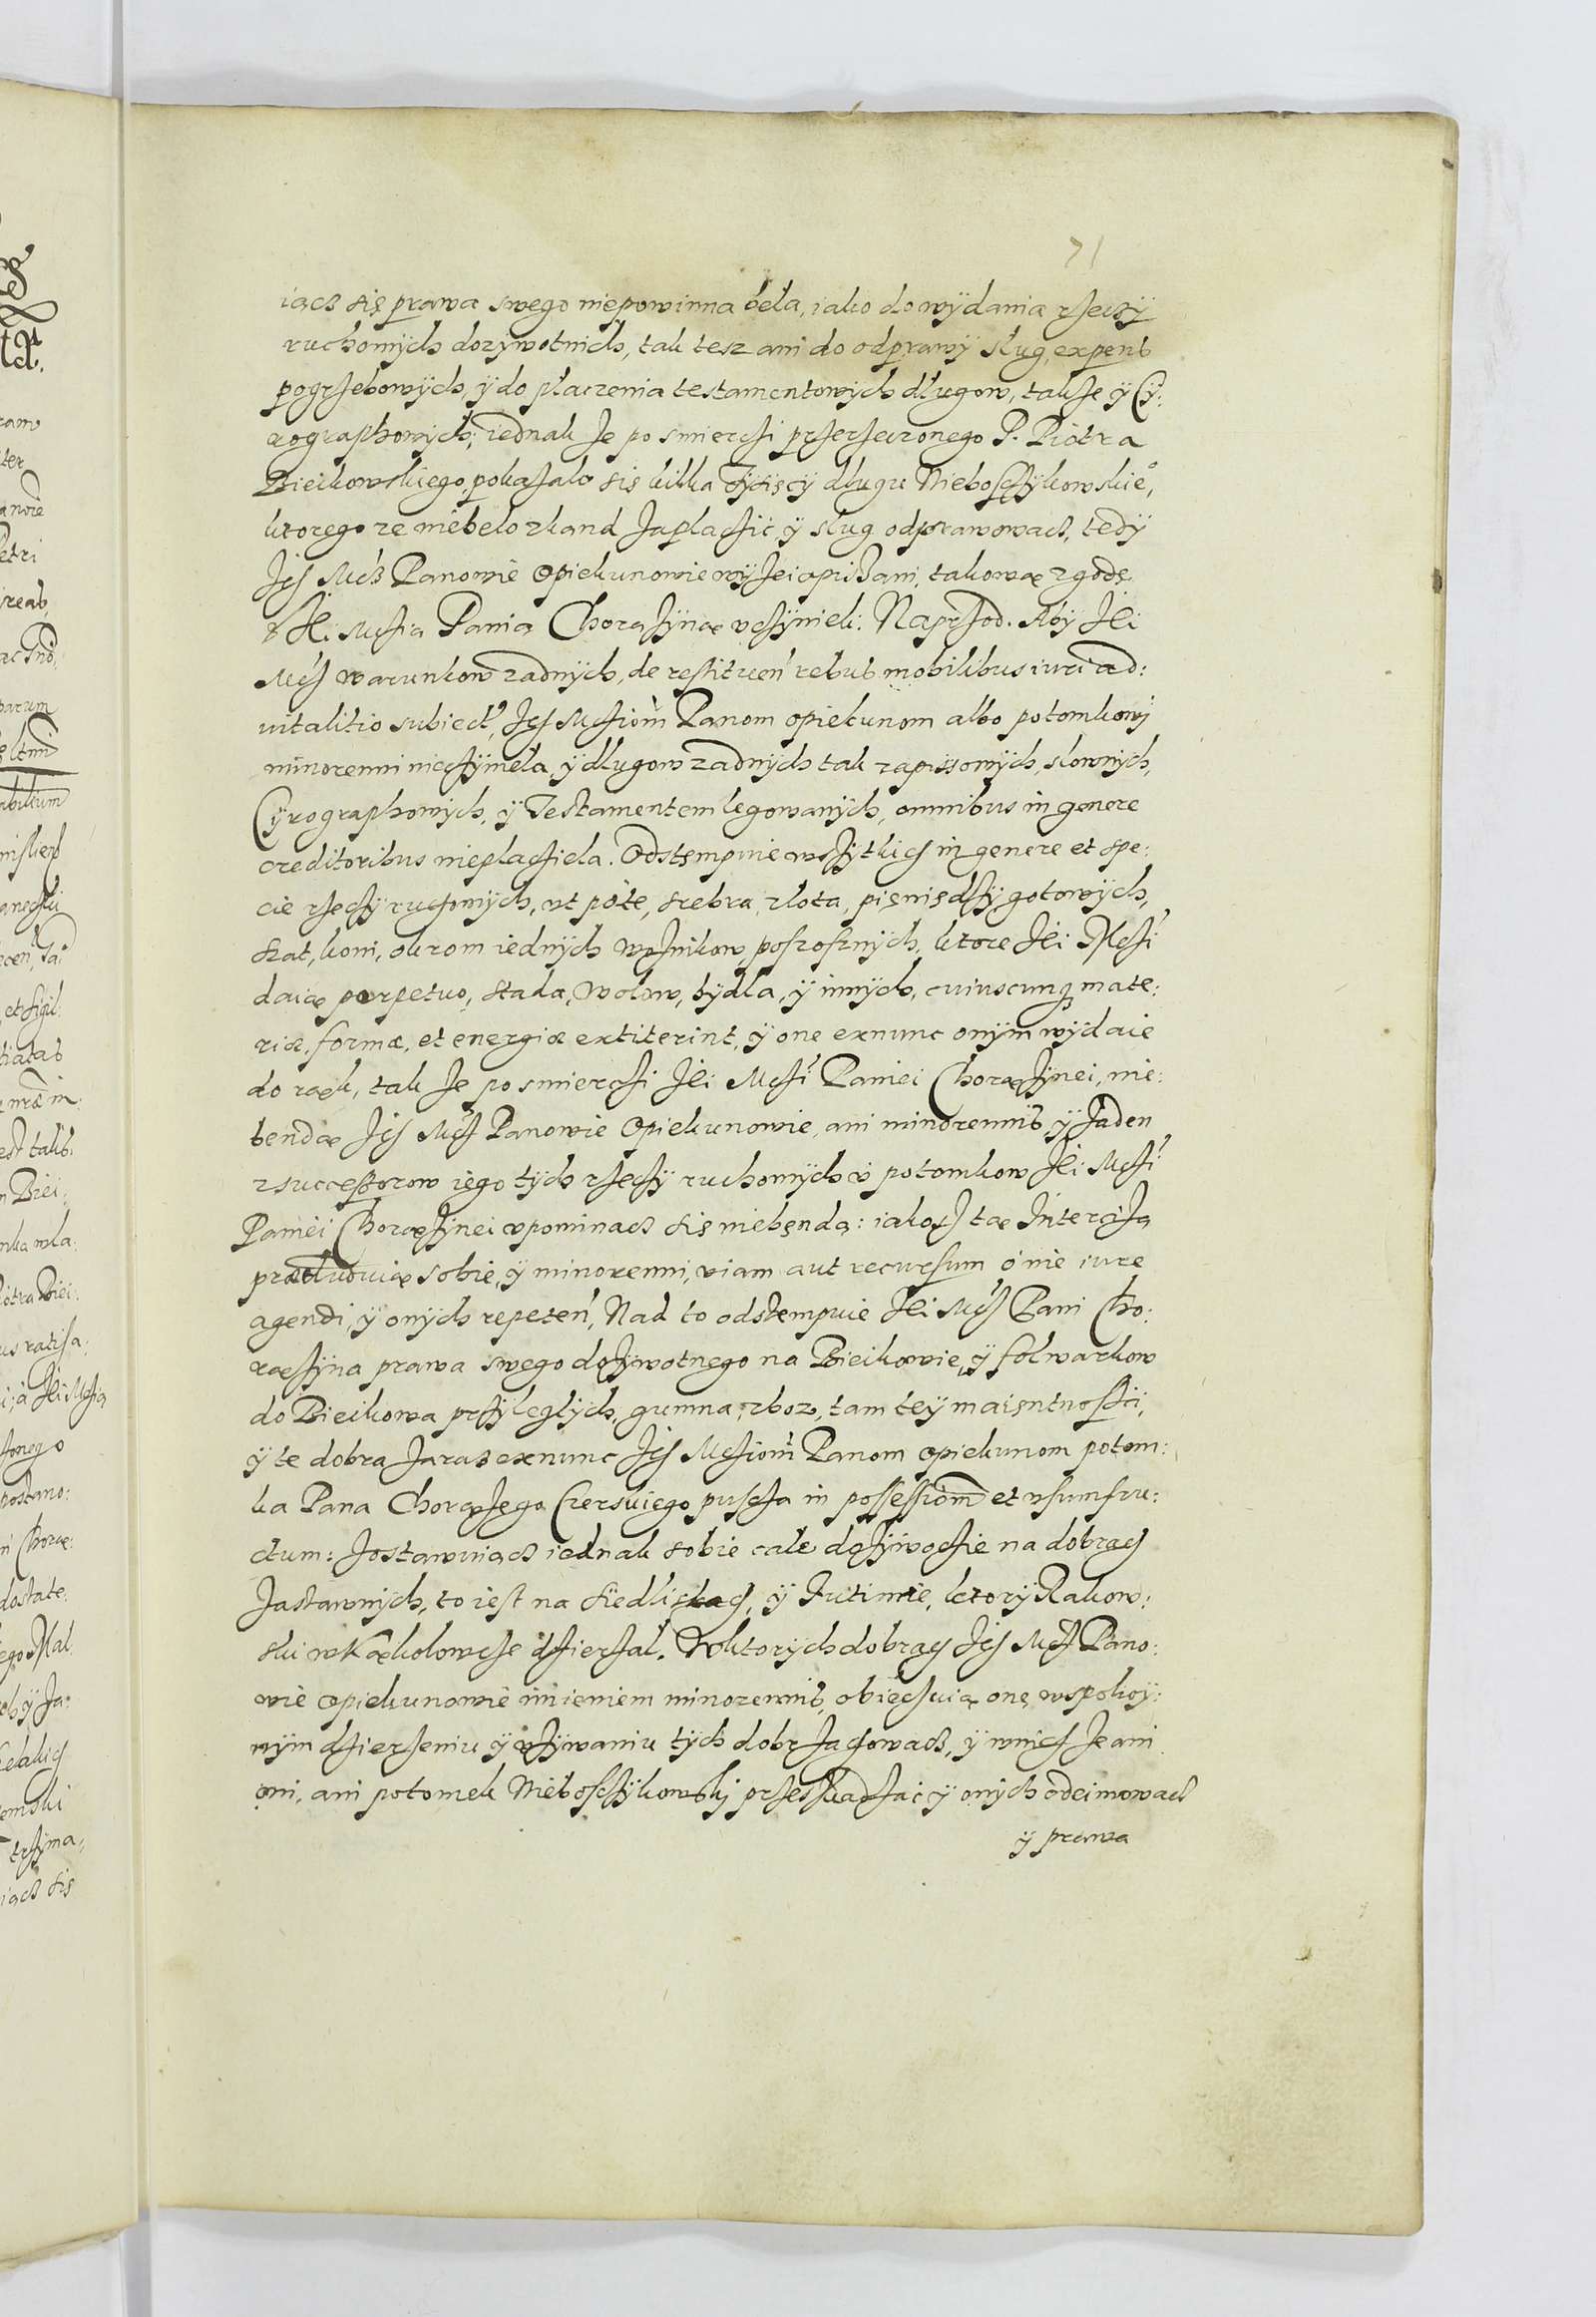 71
iącz się prawa swego niepowinna beła, iako do wÿdania rzeczÿ
ruchomÿch dozÿwotnich, tak tesz ani do odprawÿ sług, expens
pogrzebowÿch, ÿ do płaczenia testamentowÿch długow, takze ÿ Cÿ:
rographowÿch; iednak ze po smierczi przerzeczonego P. Piotra
Bieikowskiego, pokazało się kilka Tÿsięcÿ długu Nieboszczÿkowskieº,
ktorego ze niebeło zkand zapłaczić, ÿ sług odprawowacz, tedÿ
Ich Mcz Panowie Opiekunowie wÿzei opiszani, takowæ zgodę
z Jei Mczią Panią Chorązÿnæ uczÿnieli: Naprzod. Abÿ Jei
Mcz warunkow zadnÿch, de restituen rebus mobilibus iuri ad:
vitalitio subiect, Ich Mcziom Panom opiekunom albo potomkowi
minorenni nieczÿnieła, ÿ długow zadnÿch tak zapissowÿch, słownÿch,
Cÿrographowÿch, ÿ Testamentem legowanÿch, omnibus in genere
creditoribus niepłacziela. Odstempuie wszÿtkich in genere et spe:
cie rzeczÿ ruchomÿch, ut pote, srebra, złota, pieniędzÿ gotowÿch,
szat, koni, okrom iednÿch woznikow, poszosznÿch, ktore Jei Mczi
daiæ perpetuo, stada, wołow, bÿdła, ÿ innÿch, cuiuscunq mate:
riæ, formæ, et energiæ extiterint, ÿ one exnunc onÿm wÿdaie
do ræk, tak ze po smierczi Jei Mczi Paniei Choræzÿnei, nie:
bendæ Ich Mcz Panowie Opiekunowie, ani minorennis, ÿ zaden
z successorow iego tÿch rzeczÿ ruchomÿch u potomkow Jei Mczi
Paniei Choræzÿnei upominacz się niebendą: iakosz tæ Intercizą
præcluduiæ sobie, ÿ minorenni, viam aut recursum omnie iure
agendi, ÿ onÿch repeten, Nad to odstempuie Jei Mcz Pani Cho:
ræzÿna prawa swego dozÿwotnego na Bieikowie, ÿ folwarkow
do Bieikowa przÿległÿch, gumna, zboz, tam teÿ maiętnosczi,
ÿ te dobra zaraz exnunc Ich Mcziom Panom opiekunom potom:
ka Pana Choræzego Czerskiego puscza in possessiom et usumfru:
ctum: zostawuiącz iednak sobie całe dozÿwoczie na dobrach
zastawnÿch, to iest na Siedliskach, ÿ Jutimie, ktorÿ Rakow:
ski w Kækolowcze dzierzał. W ktorÿch dobrach Ich Mcz Pano:
wie opiekunowie imieniem minorennis, obieczuią onę w spokoÿ:
nÿm dzierzeniu ÿ uzÿwaniu tÿch dobr zachowacz, ÿ wnich ze ani
oni, ani potomek Nieboszczÿkowski przeszkadzać ÿ onÿch odeimowacz
ÿ prawa